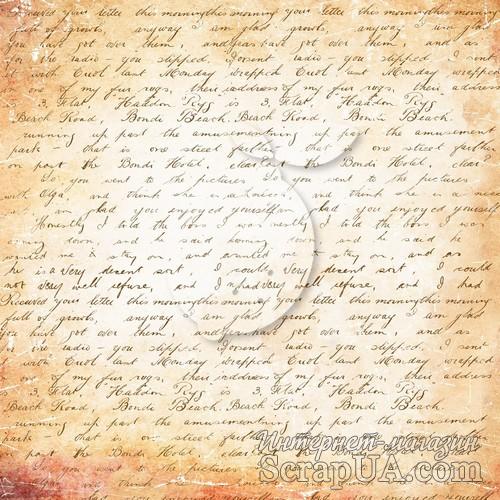 your letter this morning this morning your letter this morning this morning
full of growls, anyway I am glad growls, anyway I am glad
You have got over them, and have got over them, and as
for the radio - you slipped, I sent radio - you slipped, I sent
it with Enot last Monday wrapped Enot last Monday wrapped
in one of my fur rugs, their address of my fur rugs, their address
is 3, Flat, Haddon Rigg is 3, Flat, Haddon Rigg
Beach Road, Bondi Beach. Beach Road, Bondi Beach.
running up past the amusement running up past the amusement
park that is one street farther that is one street farther
on past the Bondi Hotel, clear past the Bondi Hotel, clear?
So you went to the pictures So you went to the pictures
with Olga, and think she is and think she is a
am glad you enjoyed yourself am glad you enjoyed yourself
Honestly I told the boss I was I told the boss I was
down, and he said coming down, and he said
wanted me to stay on, and wanted me to stay on, and as
he is a very decent sort, I could very decent sort, I could
not very well refuse, and I had very well refuse, and I had
Received your letter this morning this morning your letter this morning this morning
full of growls, anyway I am glad growls, anyway I am glad
You have got over them, and have got over them, and as
for the radio you slipped, I sent radio you slipped, I sent
it with Enot last Monday wrapped Enot last Monday wrapped
in one of my fur rugs, their address of my fur rugs, their address
is 3, Flat, Haddon Rigg is 3, Flat, Haddon Rigg
Beach Road, Bondi Beach. Beach Road, Bondi Beach.
running up past the amusement running up past the amusement
park that is one street farther
you went to the pictures
Интернет-магазин
ScrapUA.com